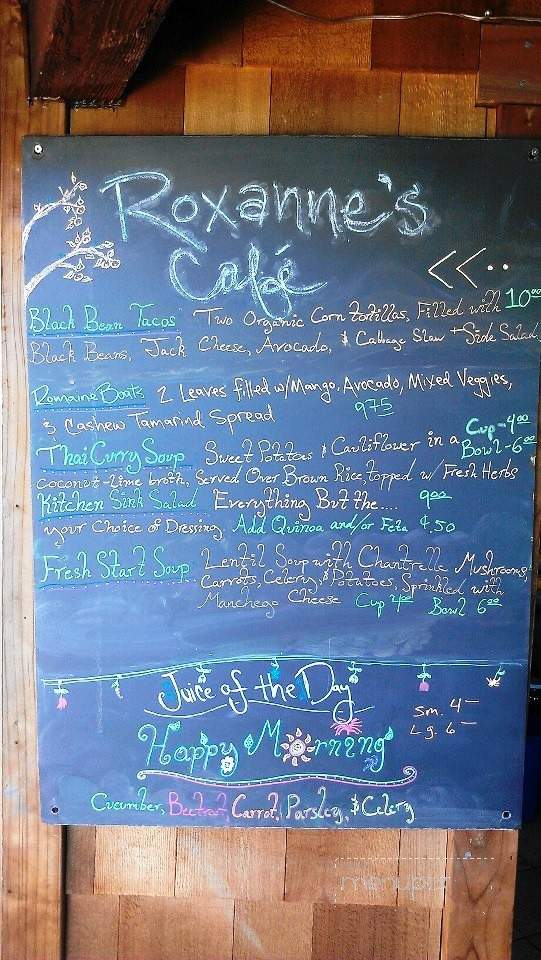 Roxanne's
Café
Black Bean Tacos Two Organic Corn tortillas, Filled with 10⁰⁰
Black Beans, Jack Cheese, Avocado, & Cabbage Slaw + Side Salad
Romaine Boats 2 Leaves filled w/Mango, Avocado, Mixed Veggies,
& Cashew Tamarind Spread 9⁷⁵
Thai Curry Soup Sweet Potatoes & Cauliflower in a Cup-4⁰⁰
Bowl-6⁰⁰
coconut-lime broth, Served Over Brown Rice, topped w/ Fresh Herbs
Kitchen Sink Salad Everything But the.... 9⁰⁰
your Choice of Dressing. Add Quinoa and/or Feta .50
Fresh Start Soup Lentil Soup with Chantrelle Mushrooms,
Carrots, Celery, & Potatoes, Sprinkled with
Manchego Cheese Cup 4⁰⁰ Bowl 6⁰⁰
Juice of the Day
Sm. 4—
Lg. 6—
Happy Morning
Cucumber, Beetroot, Carrot, Parsley, & Celery
menupix